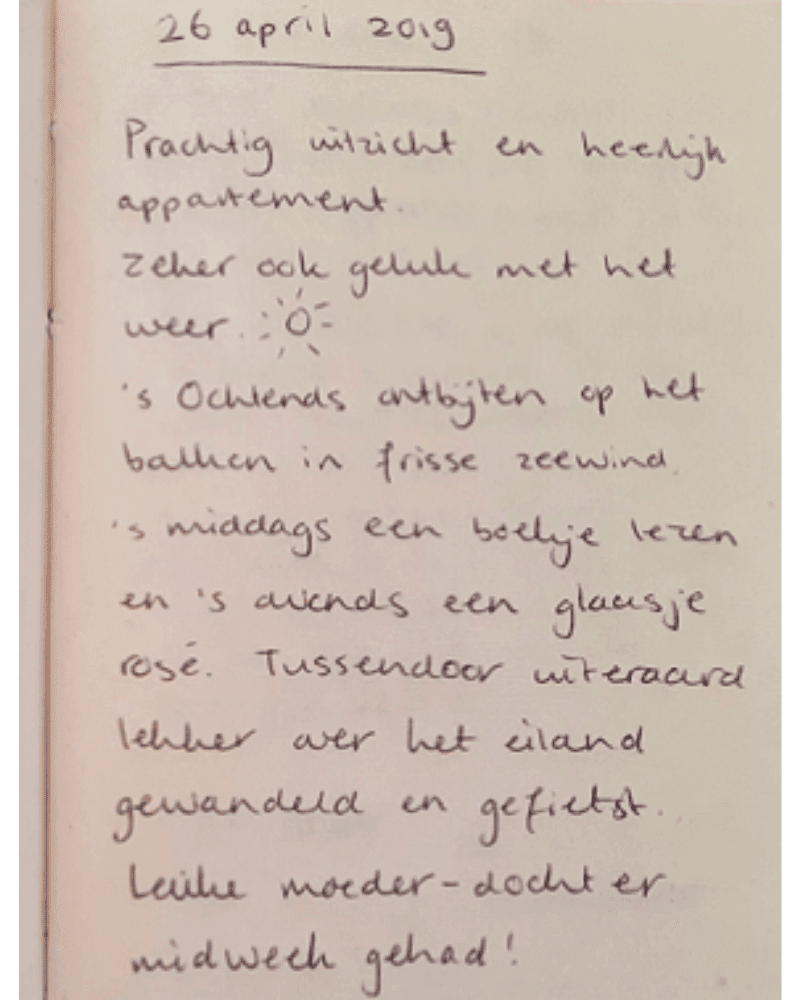 26 april 2019
Prachtig uitzicht en heerlijk
appartement.
Zeker ook geluk met het
weer.
's Ochtends ontbijten op het
balkon in frisse zeewind.
's middags een boekje lezen
en 's avonds een glaasje
rosé. Tussendoor uiteraard
lekker over het eiland
gewandeld en gefietst.
Leuke moeder-dochter
midweek gehad!